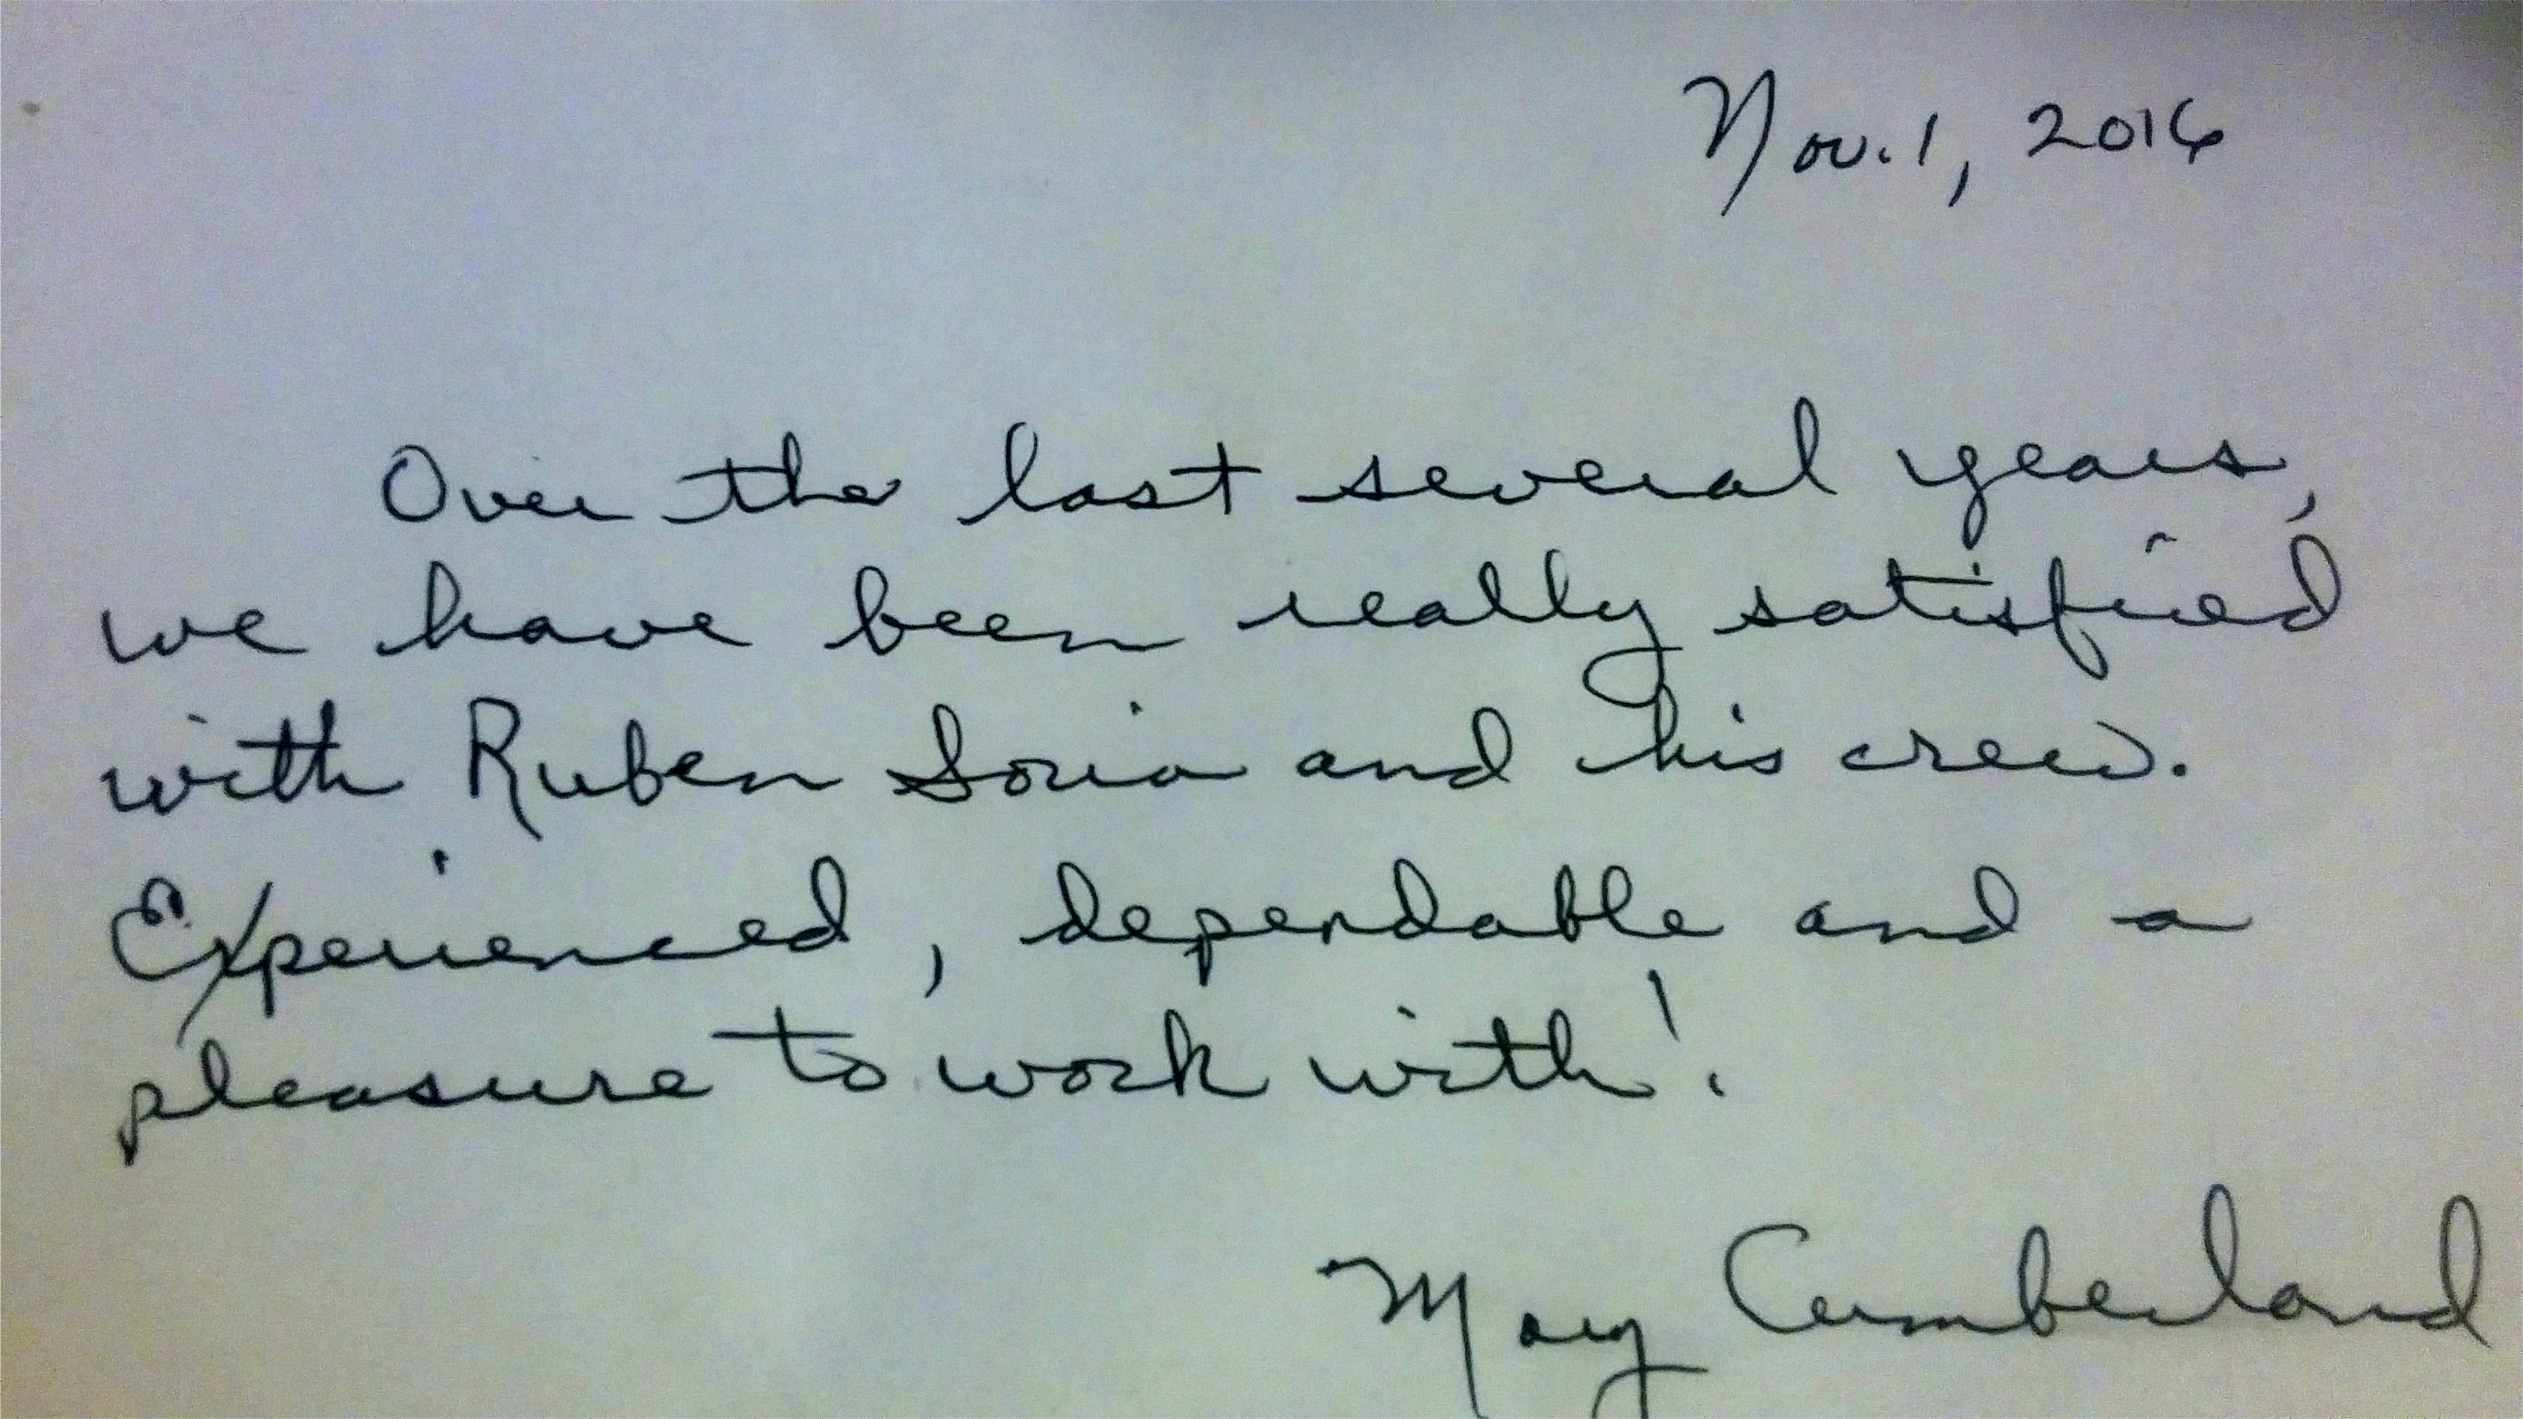 Nov. 1, 2016
Over the last several years,
we have been really satisfied
with Ruben Soria and his crew.
Experienced, dependable and a
pleasure to work with!
Mary Cumberland